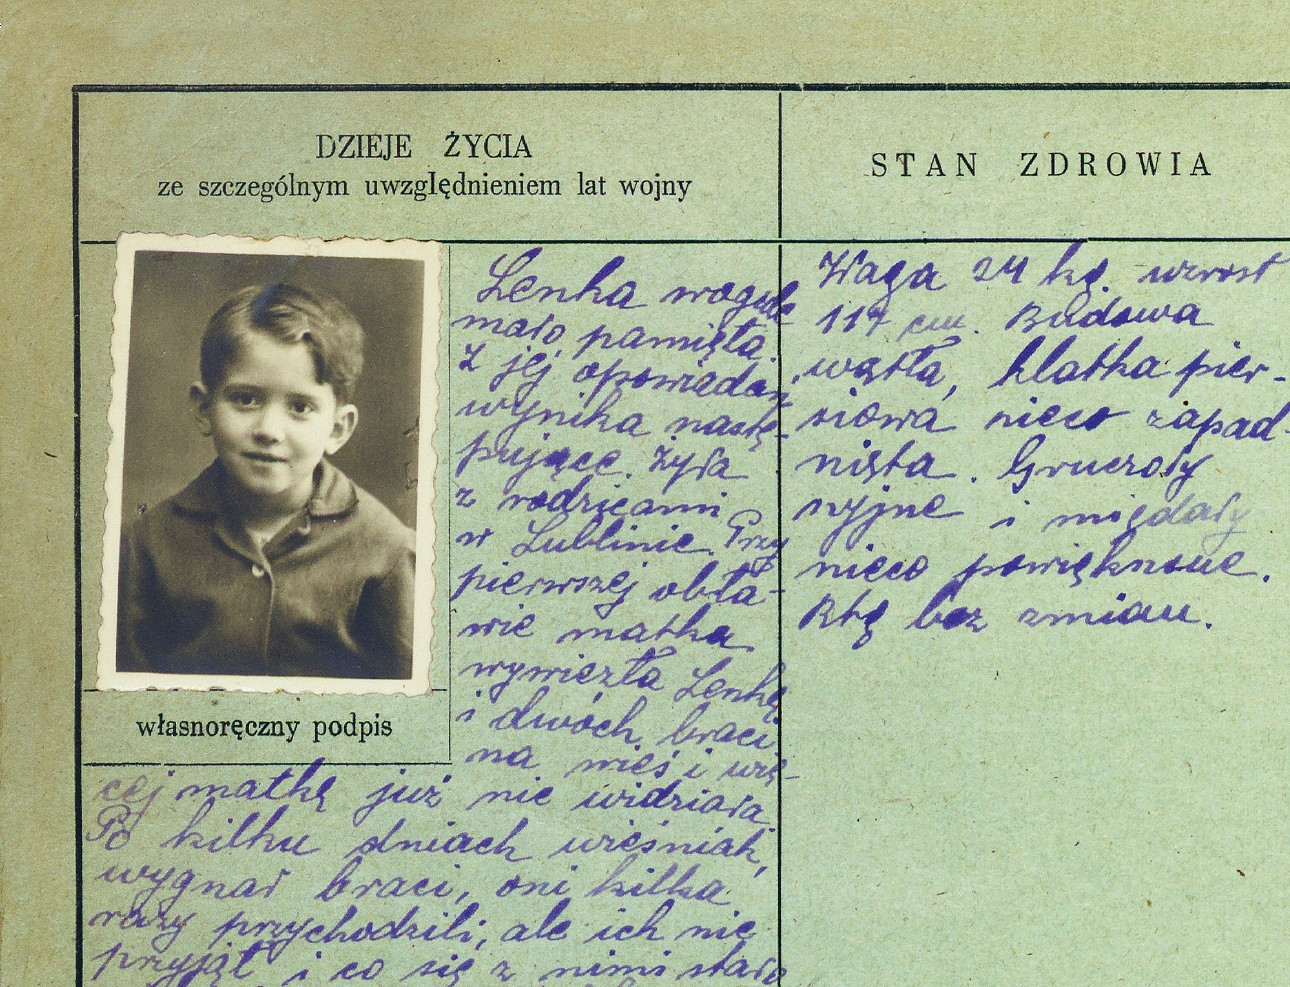 DZIEJE ŻYCIA
ze szczególnym uwzględnieniem lat wojny
Lenka wogóle
mało pamięta.
Z jej opowiadań
wynika nastę-
pujące. Żyła
z rodzicami
w Lublinie. Przy
pierwszej obła-
wie matka
wywiezła Lenkę
i dwóch braci
na wieś i wię-
cej matkę już nie widziała.
Po kilku dniach wieśniak,
wygnał braci, oni kilka
razy przychodzili, ale ich nie
przyjął i co się z nimi stało
własnoręczny podpis
STAN ZDROWIA
Waga 24 kg. wzrost
117 cm. Budowa
wątła, klatka pier-
siowa nieco zapad-
nięta. Gruczoły
szyjne i migdały
nieco powiększone.
Rtg bez zmian.